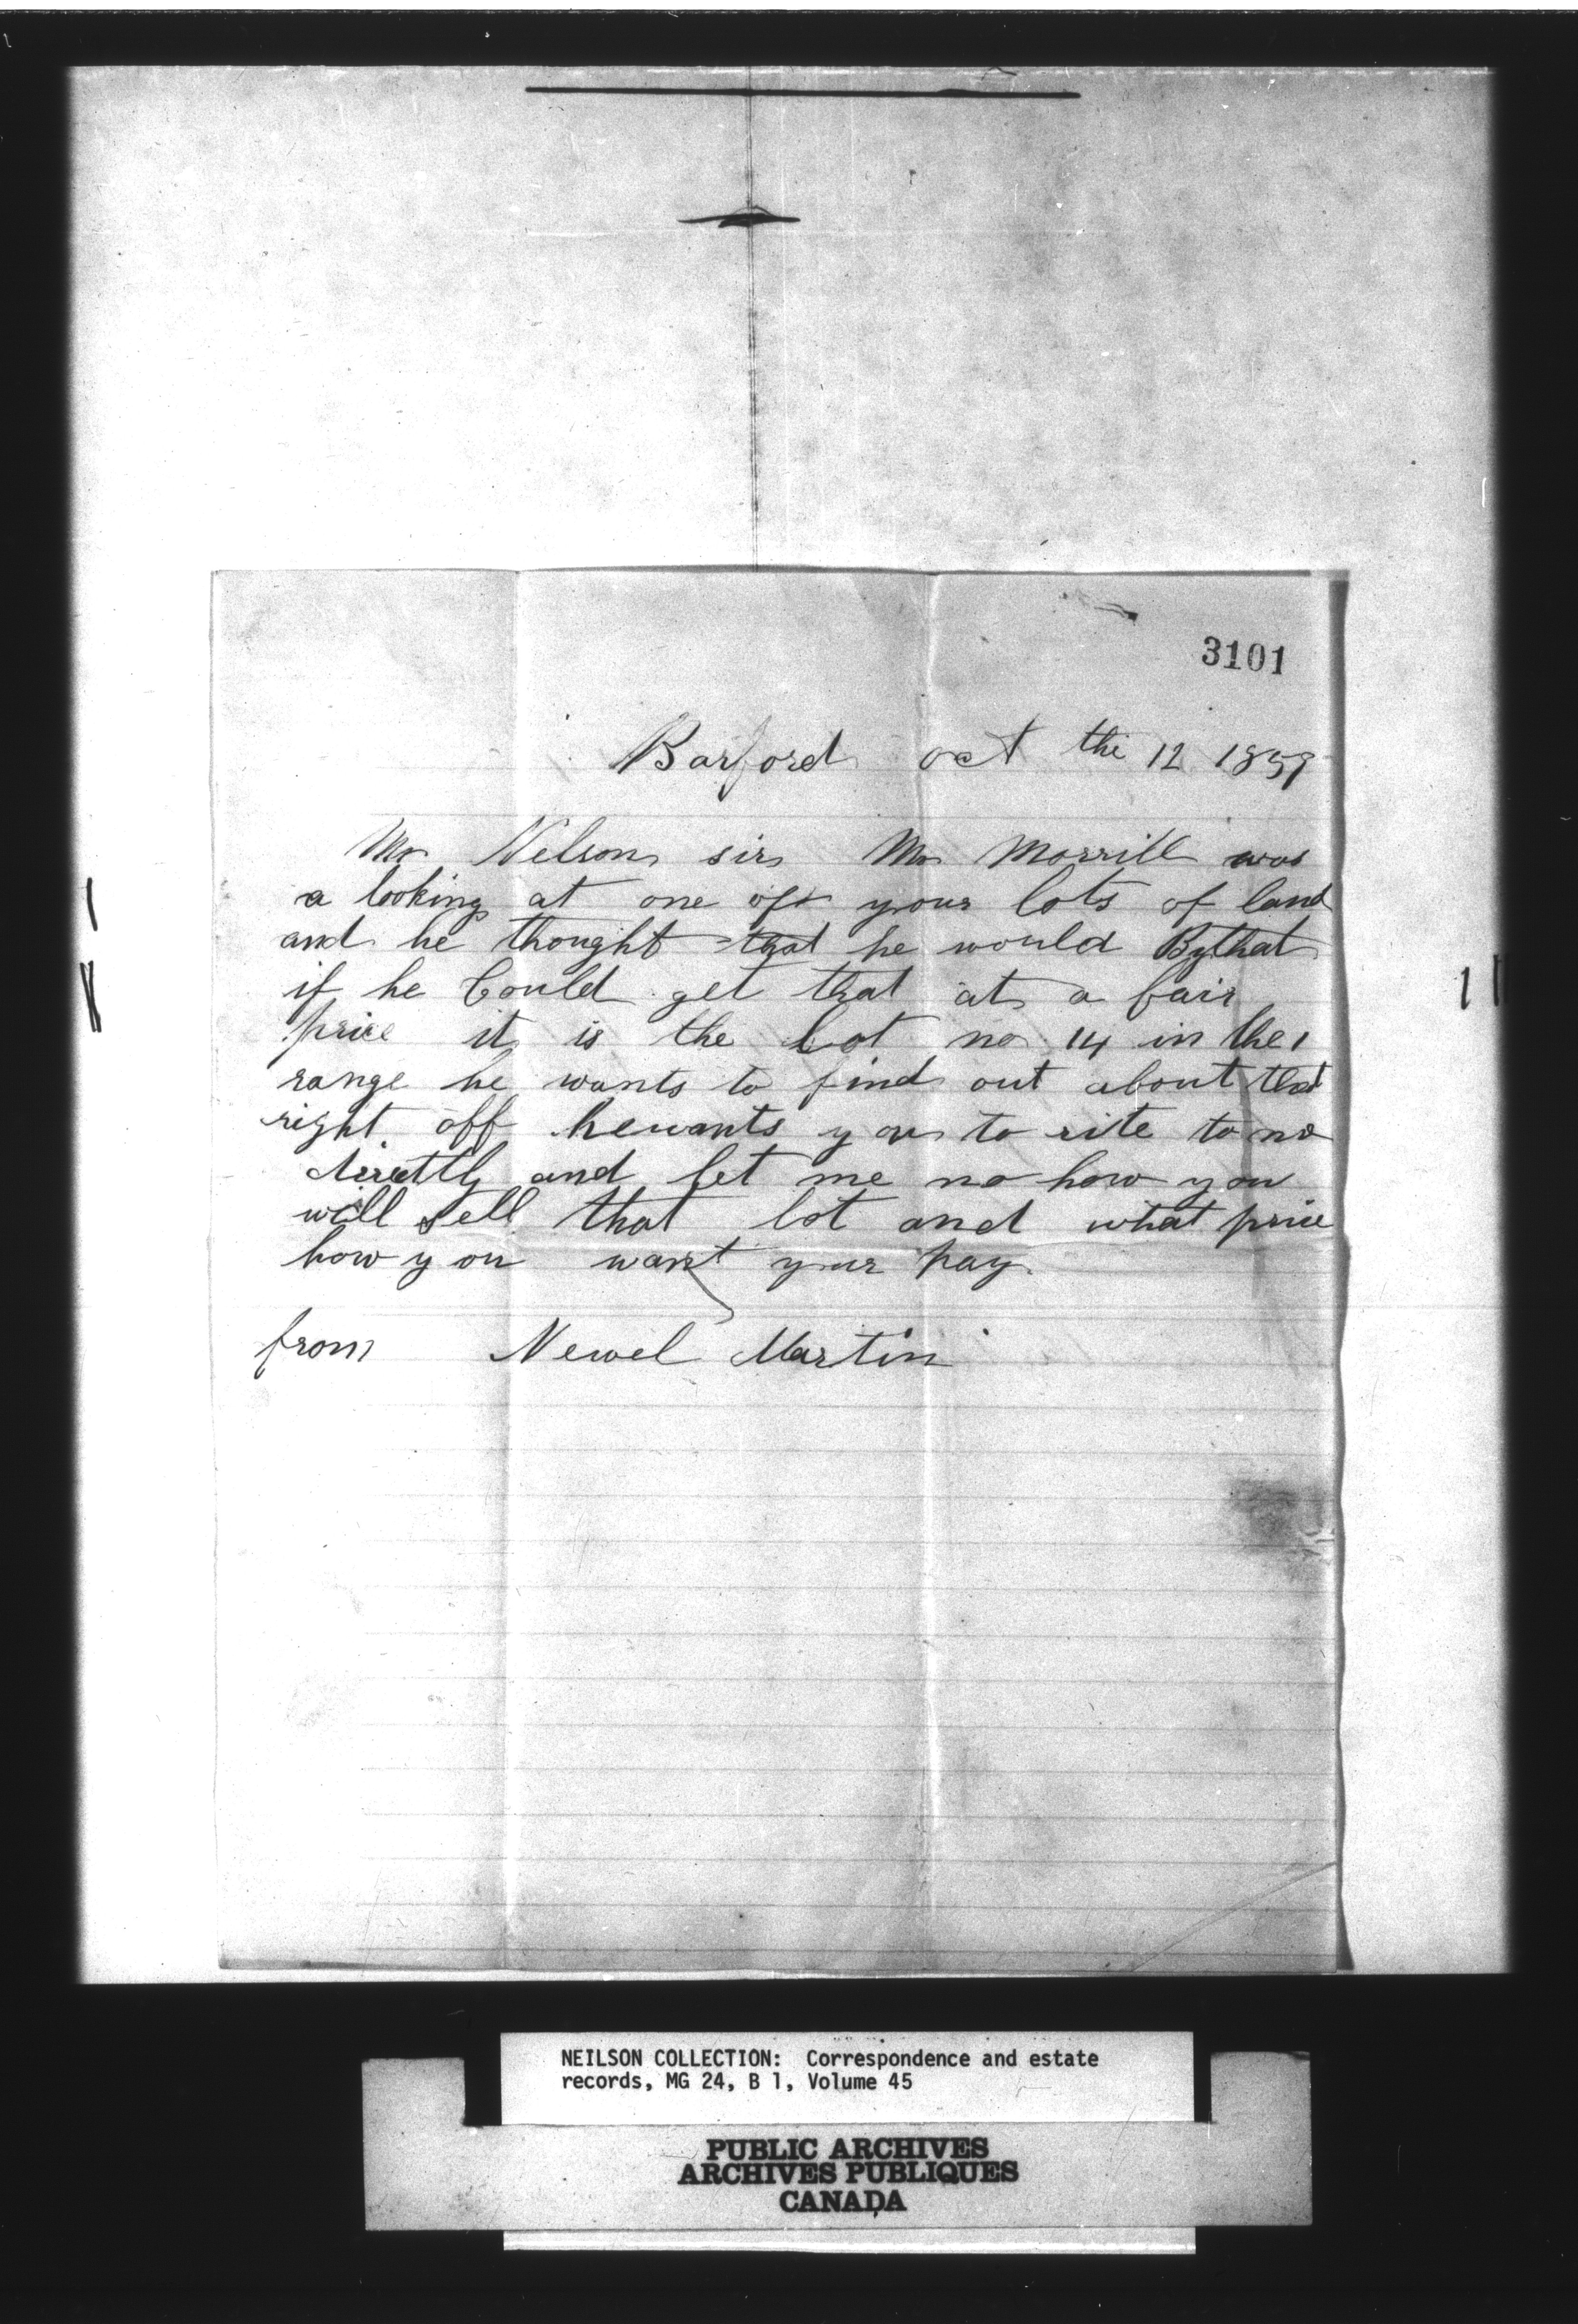 3101
Barford oct the 12 1859
Mr Nelson sir Mr Morrill was
a looking at one of your lots of land
and he thought that he would By that
if he Could get that at a fair
price it is the Lot no 14 in the 1
range he wants to find out about that
right off he wants you to rite to me
directly and let me no how you
will sell that lot and what price
how you want your pay.
from Newel Martin
NEILSON COLLECTION: Correspondence and estate
records, MG 24, B 1, Volume 45
PUBLIC ARCHIVES
ARCHIVES PUBLIQUES
CANADA